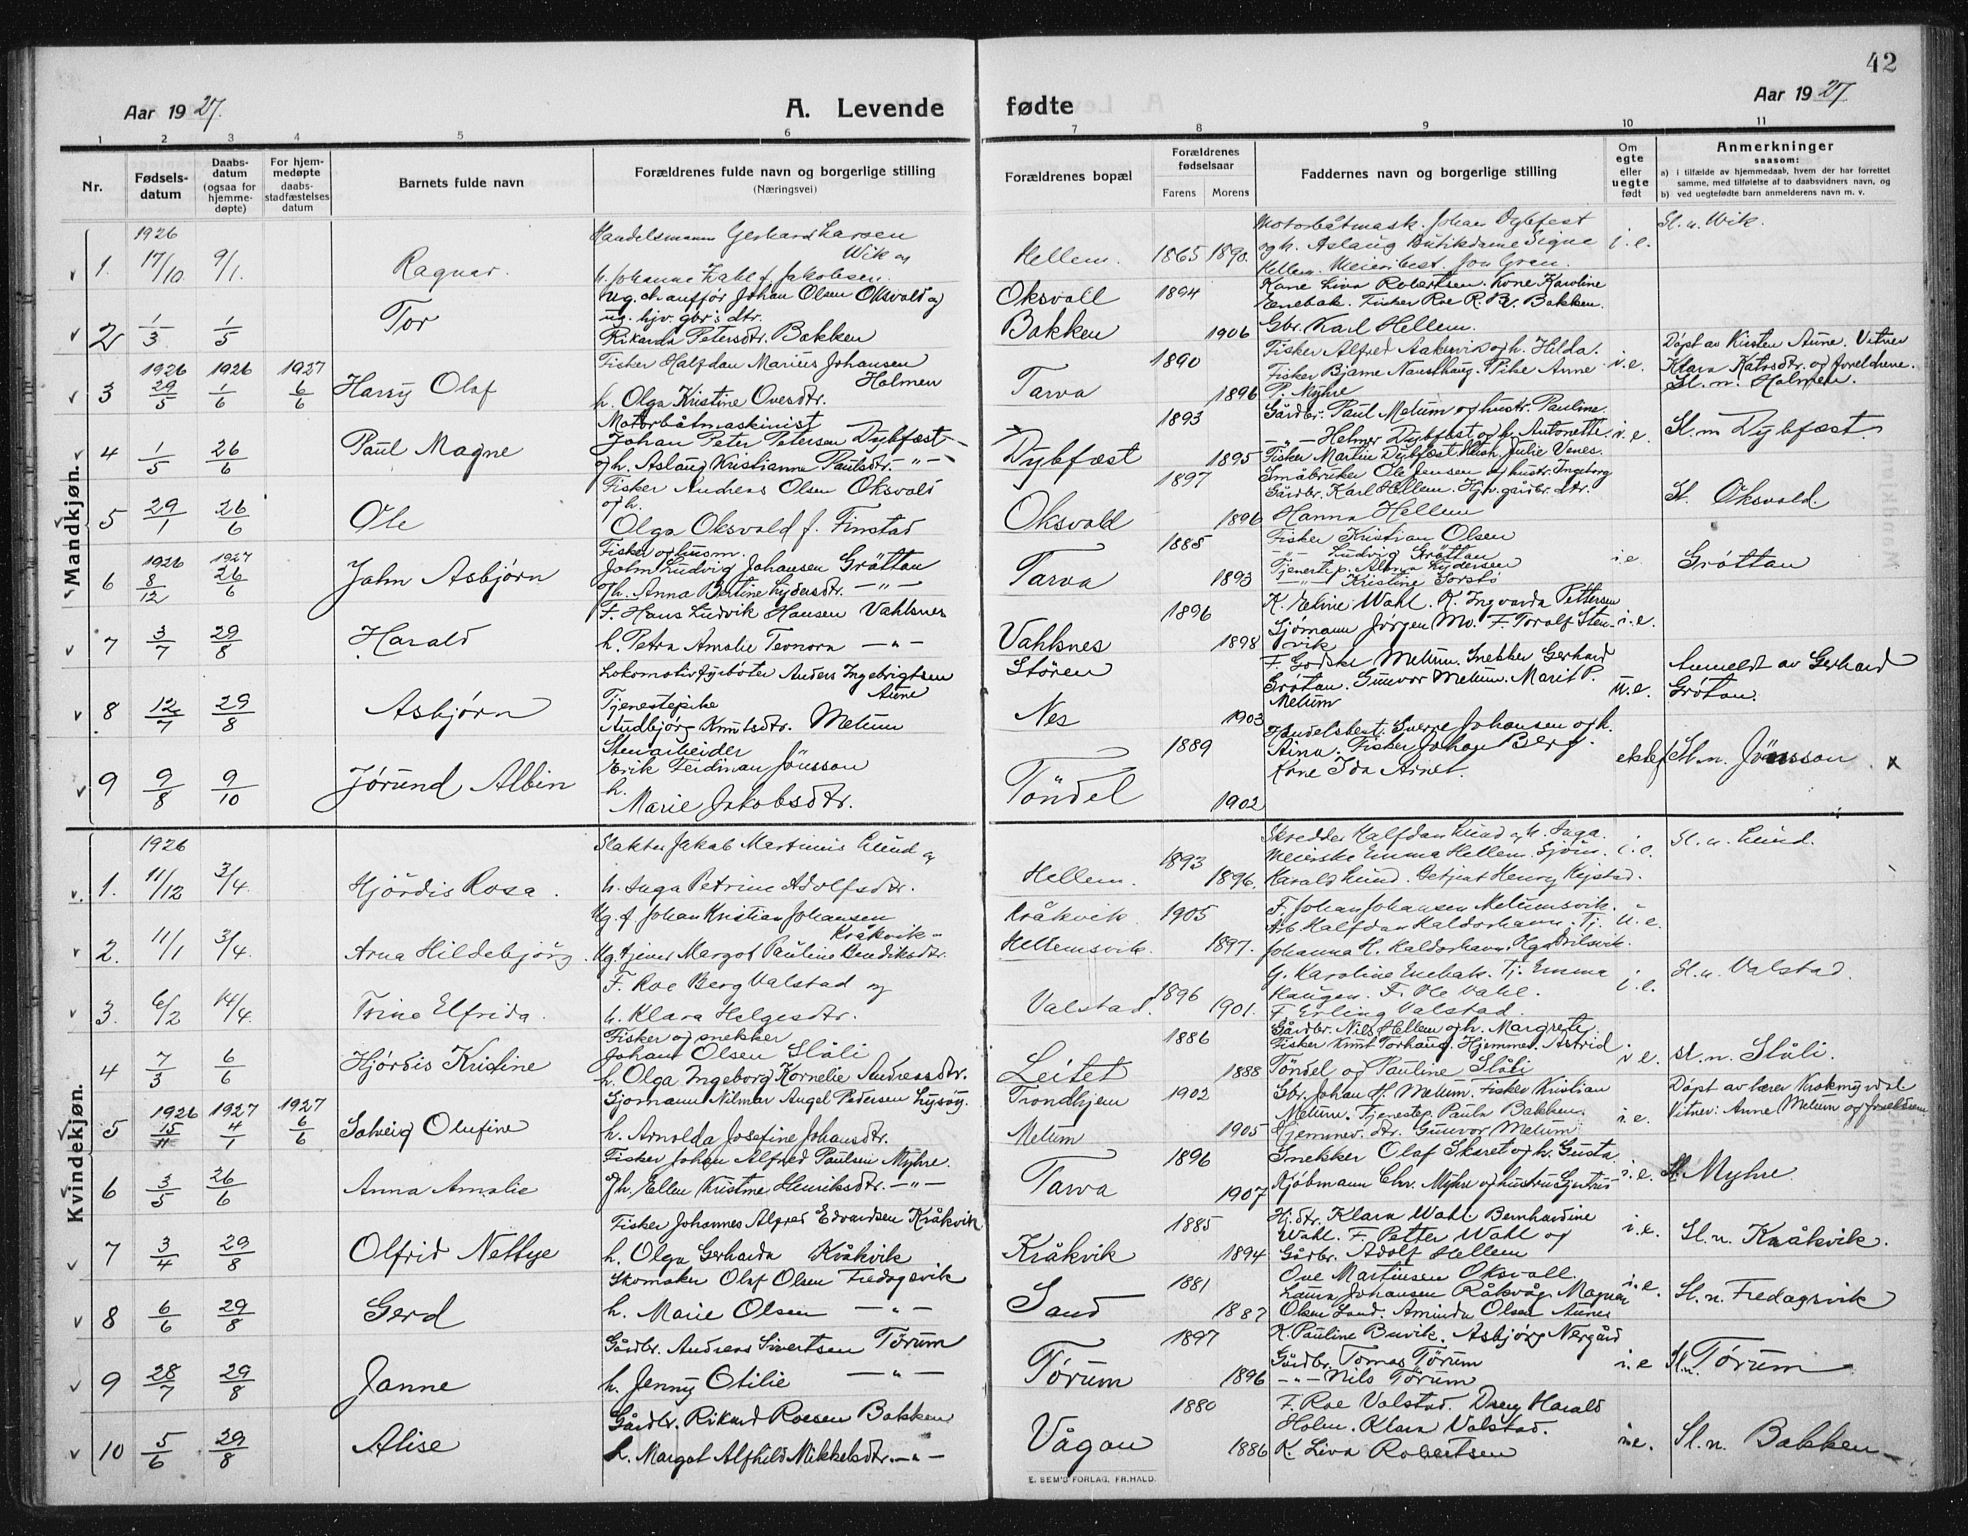 42
Aar 1927. A. Levende fødte Aar 1927
1 2 3 4 5 6 7 8 9 10 11
Nr. Fødsels-datum Daabs-datum (ogsaa for hjemme-døpte) For hjem-medøpte daabs-stadfæstelses datum Barnets fulde navn Forældrenes fulde navn og borgerlige stilling (Næringsvei) Forældrenes bopæl Forældrenes fødselsaar Farens Morens Faddernes navn og borgerlige stilling Om egte eller uegte født Anmerkninger saasom: a) i tilfælde av hjemmedaab, hvem der har forrettet samme, med tilføielse af to daabsvidners navn, og b) ved uegtefødte barn anmelderens navn m. v.
Mandkjøn.
1926 Handelsmann Gerhard Larsen Motorbåtmask. Johan Dybfest Sl. n. Wik.
1. 17/10 9/1. Ragnar. Wik og Hellem. 1865 1890. og h. Aslaug Butikdame Signe i. e.
h. Johanne Zahl f. Jakobsen. Hellem. Meieribest. Jon Gran.
Ug. chauffør Johan Olsen Oksvold og Oksvoll 1894 Kone Liva Robertsen. Kone Karoline
2 1/3 1/5 Tor ug. hjv. gbr's dtr. Enebak. Fisker Roe R. Bakken.
Rikarda Petersdtr. Bakken Bakken 1906 Gbr. Karl Hellem.
1926 1926 1927 Fisker Halfdan Marius Johansen 1890 Fisker Alfred Aakervik og h. Hilda. Døpt av Kirsten Aune. Vitner
3 29/5 1/6 6/6 Harry Olaf Holmen Tarva Fisker Bjarne Nausthaug. Pike Anne i.e. Klara Katrsdtr. og foreldrene.
h. Olga Kristine Ovesdtr. 1896 P. Myhre Sl. n. Holmen.
Motorbåtmaskinist 1893 Gårdbr. Paul Melum og hustr. Pauline.
4 1/5 26/6 Paul Magne Johan Peter Petersen Dybfæst Dybfæst -"- Helmer Dybfest og h. Antonette. i. e. Sl. n Dybfæst
og h. Aslaug Kristianne Paulsdtr. -"- 1895 Fisker Martin Dybfæst
Fisker Andreas Olsen Oksvold 1897 Småbruker Ole Jensen og hustr. Ingeborg
5 29/1 26/6 Ole og h. Oksvold Gårdbr. Karl Hellem. Hjv. gårdbr. dtr. Sl. Oksvold
Olga Oksvold f. Finstad 1896 Hanna Hellem
1926 1927 Fisker og husm. 1885 Fisker Kristian Olsen
6 8/12 26/6 John Asbjørn John Ludvig Johansen Grøttan Tarva -"- Ludvig Grøttan i.e. Grøttan
og h. Anna Bertine Lydersdtr. -"- 1893 -"- Kristine
F. Hans Ludvik Hansen Vahlsnes 1896 K. Eline Wahl. K. Ingvarda Pettersen
7 3/7 29/8 Harald h. Petra Amalie Teonora -"- Vahlsnes 1898 Sjømann Jørgen Mo. F. Toralf Sten- i.e.
vik
Lokomotivfyrbøter Anders Ingebrigtsen Støren F. Godske Melum. Snekker Gerhard Anmeldt av Gerhard
8 12/7 29/8 Asbjørn Aune Grøtan. Gunvor Melum. Marit P. u.e. Grøtan.
Tjenestepike
Audbjørg Knutsdtr. Melum Nes 1903 Melum
Stenarbeider 1889 Handelsbest. Sverre Johansen og h.
9 9/8 9/10 Jørund Albin Erik Ferdinan Jönsson Töndel Aina. Fisker Johan Berg. ektef. Sl. n. Jönsson x
h. Marie Jakobsdtr. 1902 Kone Ida
Kvindekjøn.
1926 Slakter Jakob Martinus Lund og 1893 Skredder Halfdan Lund og h. Inga. Sl. n. Lund.
1. 11/12 3/4. Hjördis Rosa. h. Inga Petrine Adolfsdtr. Hellem. 1896. Meierske Emma Hellem. Sjöm. i. e.
Harald Lund. Henry
Ug. f. Johan Kristian Johansen Kråkvik. 1905 F. Johan Johansen Melumsvik.
2. 11/1 3/4. Arna Hildebjörg. Kråkvik Arb. Halfdan Kaldorhavn. Tj. u. e.
Ug. tjener Margot Pauline Bendiksdtr. Hellemsvik. 1897. Johanna H. Kaldorhavn.
F. Roe Berg Valstad og 1896 G. Karoline Enebak. Tj. Emma Sl. n. Valstad.
3. 6/2 14/4. Trine Elfrida. h. Klara Helgesdtr. Valstad. 1901. Haugen. F. Ole Vahl. i. e.
F. Erling Valstad.
Fisker og snekker 1886 Gårdbr. Nils Hellem og h. Margrete.
4 7/3 6/6 Hjørdis Kristine Johan Olsen Slåli Leitet Fisker Knut Torhaug. Hjemmev. Astrid i e. Sl. n. Slåli.
h. Olga Ingeborg Kornelie Andreasdtr. 1888 Töndel og Pauline Slåli
1926 1927 1927 Sjømann Nilmar Angel Pedersen Lysøy. Trondhjem 1902 Gbr. Johan H. Melum. Fisker Kristian Døpt av lærer Krokmyrdal
5 15/11 4/1 6/6 Solveig Olufine h. Arnolda Josefine Johansdtr. Melum 1905 Melum. Tjenestep. Paula Bakken. i.e. Vitner: Anne Melum og
Hjemmev. dtr. Gunvor Melum
Fisker Johan Alfred Paulsen Myhre. 1896 Snekker Olaf Skaret og h. Gusta
6 3/5 26/6 Anna Amalie og h. Ellen Kristine Henriksdtr. -"- Tarva 1907 Kjöbmann Chr. Myhre og hustru i. e. Sl. Myhre
Fisker Johannes Alfred Edvardsen Kråkvik 1885 Hj. dtr. Klara Wahl Bernhardine
7 3/4 29/8 Olfrid Nelbye h. Olga Gerharda Kråkvik Kråkvik 1894 Wahl. F. Petter Wahl og i.e. Sl. n. Kråkvik.
Gårdbr. Adolf Hellem
Skomaker Olaf Olsen Fredagsvik 1881 Ove Martinsen Oksvoll
8 6/6 29/8 Gerd h. Marie Olsen -"- Sand 1887 Laura Johansen Råkvåg. Magnar i.e. Sl. n. Fredagsvik
Olsen Sand. Aminda Olsen Aunes
Gårdbr. Andreas Sivertsen Tørum 1897 K. Pauline Buvik. Asbjørg Nergård
9 28/7 29/8 Janne h. Jenny Otilie -"- Tørum 1896 Gårdbr. Tomas Tørum i.e Sl. n. Tørum
-"- Nils Tørum
Gårdbr. Rikard Roesen Bakken 1880 F. Roe Valstad. Dreng Harald
10 5/6 29/8 Alise h. Margot Alfhild Mikkelsdtr. -"- Vågan 1886 Holm. Klara Valstad. i.e. Sl. n. Bakken
K. Liva Robertsen
E. SEM'S FORLAG, FR.HALD.